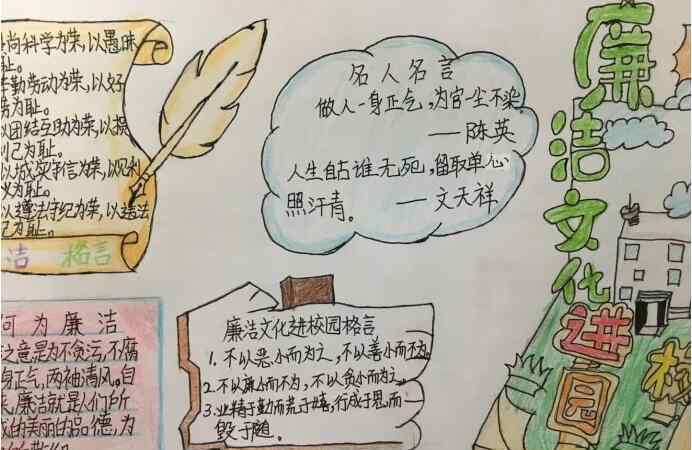 尚科学为荣,以愚昧
耻。
辛勤劳动为荣,以好
劳为耻。
以团结互助为荣,以损
利己为耻。
以诚实守信为荣,以见利
义为耻。
以遵法守纪为荣,以违法
纪为耻。
洁 格言
何为廉洁
之意是为不贪污,不腐
身正气,两袖清风。自
来,廉洁就是人们所
成的美丽的品德,为
名人名言
做人一身正气,为官一尘不染
——陈英
人生自古谁无死,留取单心
照汗青。 ——文天祥
廉洁文化进校园格言
1. 不以恶小而为之,不以善小而不为。
2. 不以廉小而不为,不以贪小而为之。
3. 业精于勤而荒于嬉,行成于思而
毁于随。
廉洁文化进校园